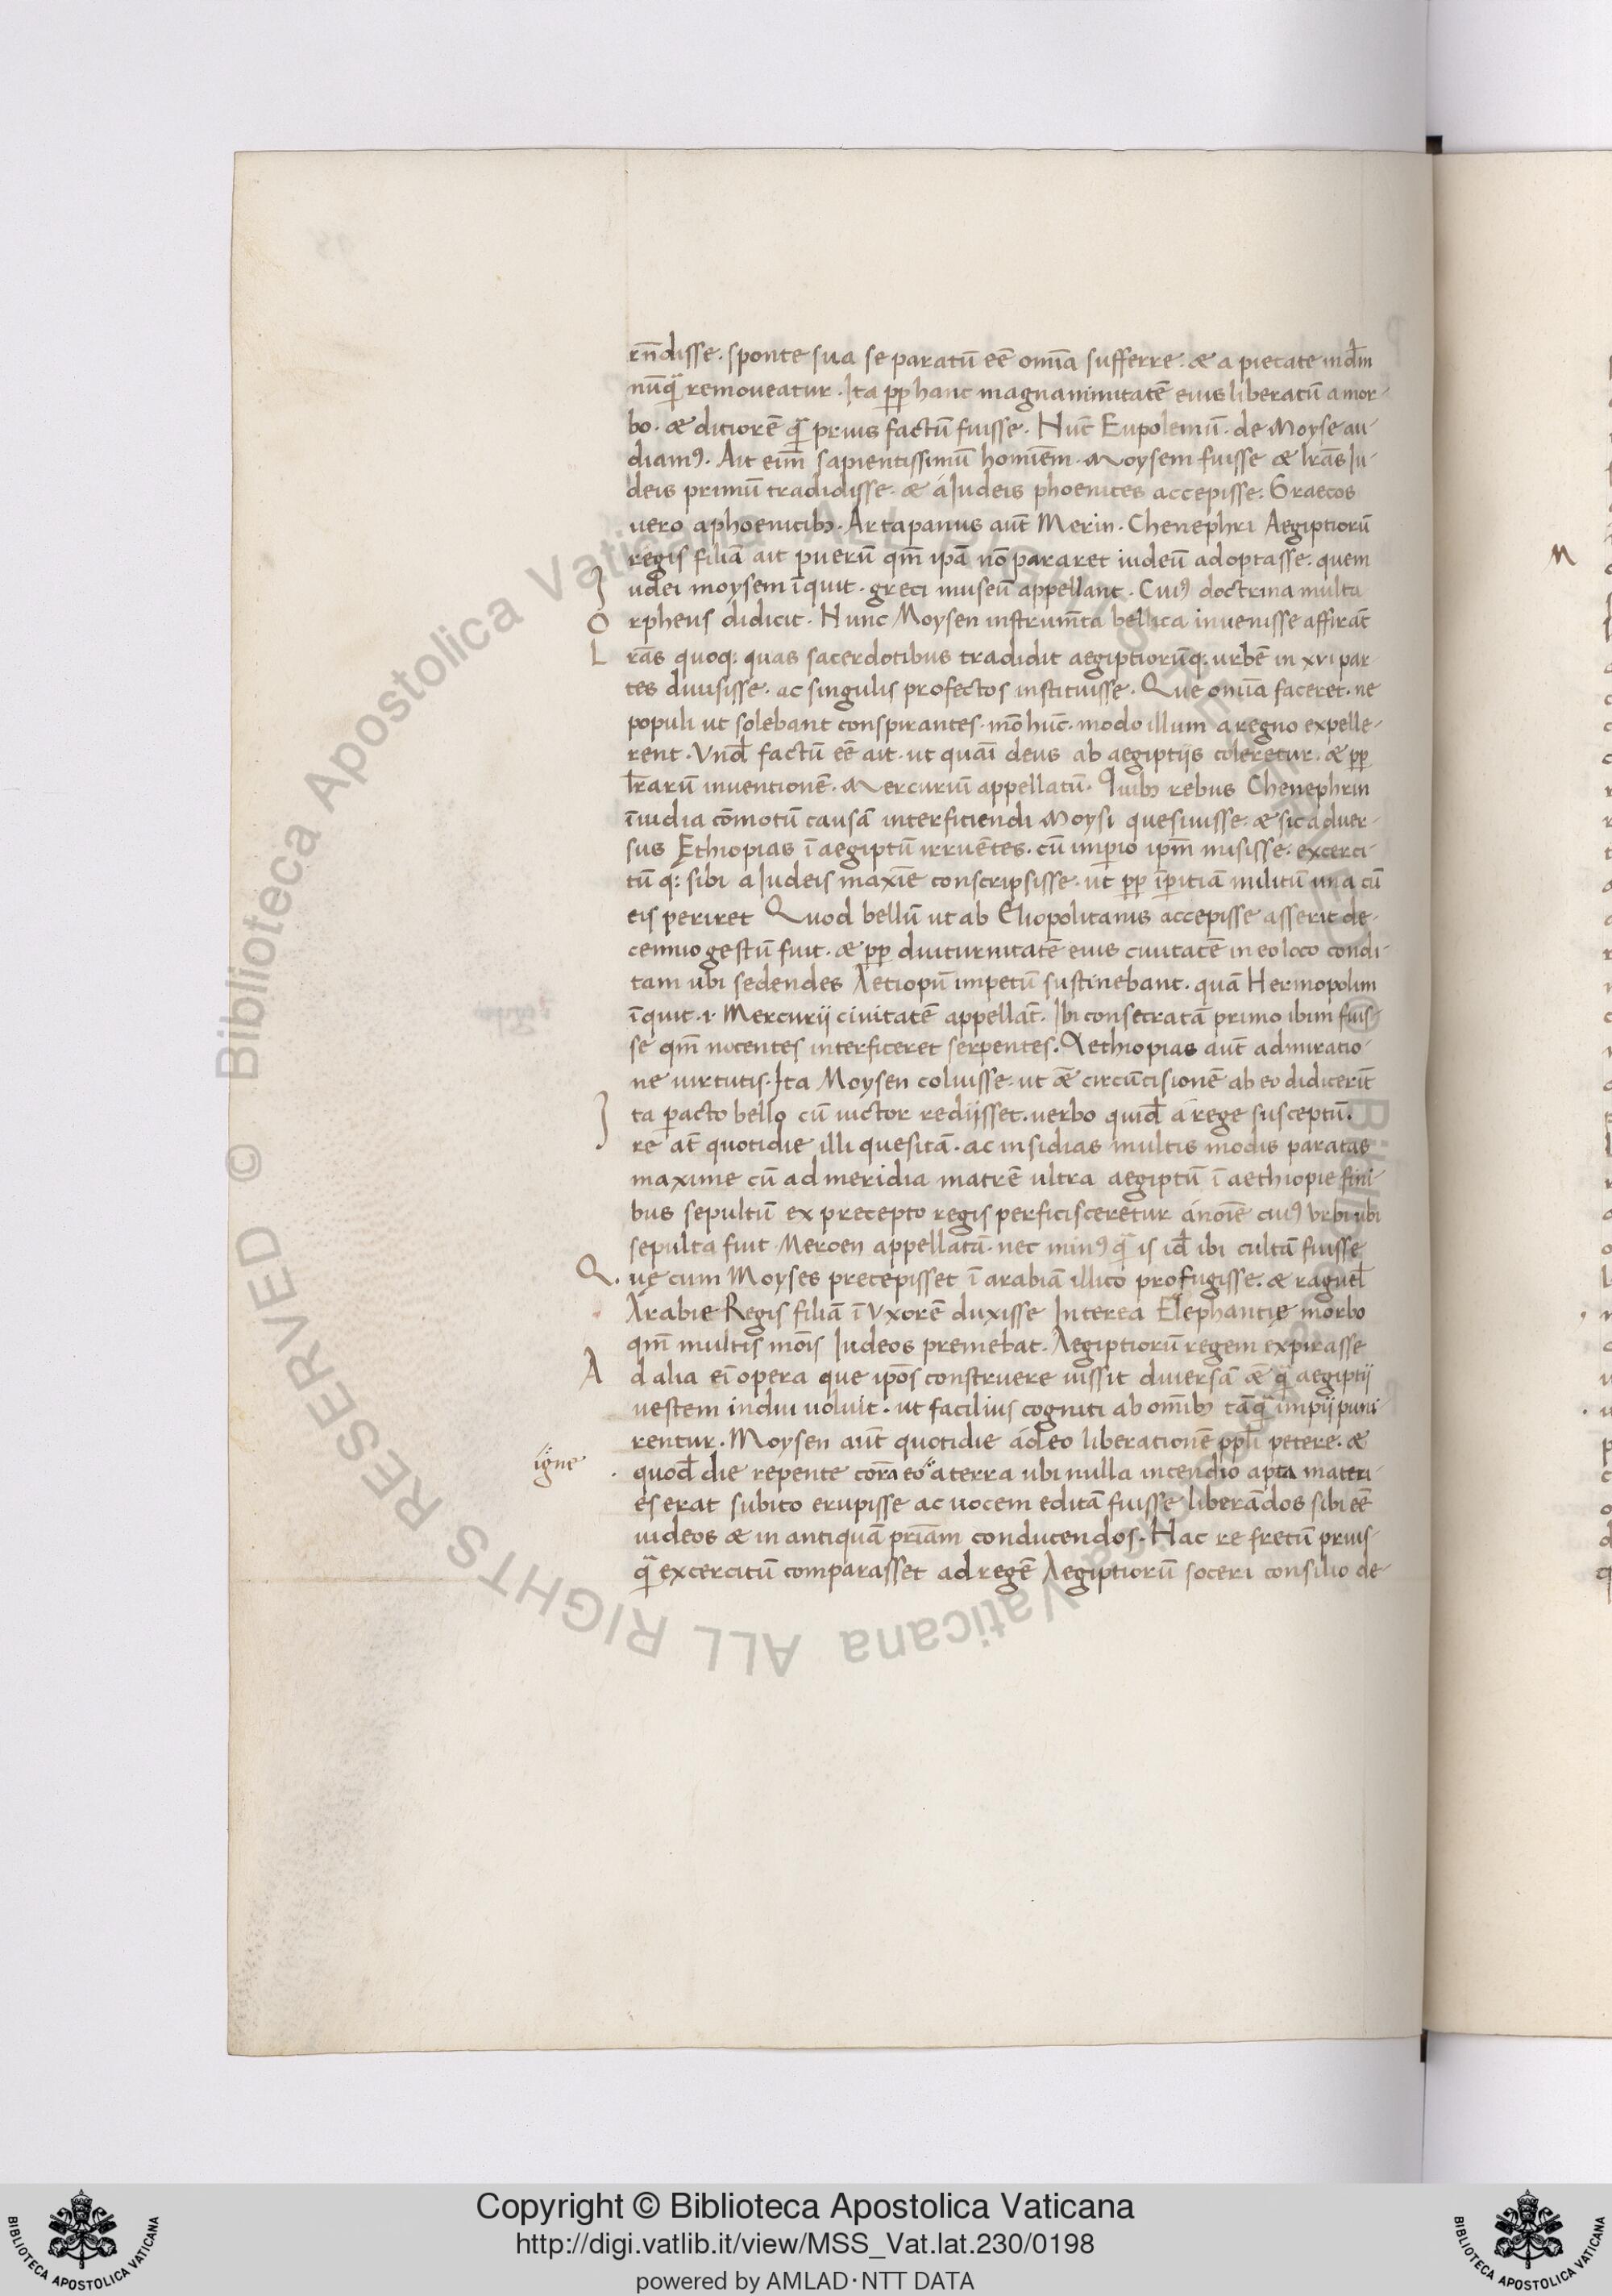 rn̄disse. sponte sua se paratū eē omīa sufferre. & a pietate indēm
nūq̄ remoueatur. Ita pp̄ hanc magnanimitatē eius liberatū a mor-
bo. & ditiorē q̄ prius factū fuisse. Hūc Eupolemū. de Moyse au-
diamꝰ. Ait eīm sapientissimū homiēm. Moysem fuisse & lr̄as Iu-
deis primū tradidisse. & á Iudeis phoenices accepisse. Graecos
uero a phoenicibꝫ. Artapanus aūt Merin. Chenephri Aegiptiorū
regis filiā ait puerū qm̄ ipā nō pararet iudeū adoptasse. quem
I udei moysem īquit. greci museū appellant. Cuiꝰ doctrina multa
O rpheus didicit. Hunc Moysen instrum̄ta bellica inuenisse affirāt
L rās quoq: quas sacerdotibus tradidit aegiptiorūq: urbē in xvi par-
tes diuisisse. ac singulis profectos instituisse. Que omīa faceret. ne
populi ut solebant conspirantes. mō hūc. modo illum a regno expelle-
rent. Vnd̄ factū eē ait. ut quāi deus ab aegiptijs coleretur. & pp̄
lr̄arū inuentionē. Mercuriū appellatū. Quibꝫ rebus Chenephrin
īuidia cōmotū causā interficiendi Moysi quesiuisse. & sic aduer-
sus Ethiopias ī aegiptū irruētes. cū imperio ipm̄ misisse. excerci-
tū q: sibi a Iudeis maxīe conscripsisse. ut pp̄ īperitiā militū una cū
eis periret Quod bellū ut ab Eliopolitanis accepisse asserit de-
cennio gestū fuit. & pp̄ diuturnitatē eius ciuitatē in eo loco condi-
tam ubi sedendes Aetiopū impetū sustinebant. quā Hermopolim
īquit .i. Mercurij ciuitatē appellāt. Ibi consecratā primo ibim fuis-
se qm̄ nocentes interficeret serpentes. Aethiopias aūt admiratio-
ne uirtutis. Ita Moysen coluisse. ut &̄ circūcisionē ab eo didicerīt
I ta pacto bello cū uictor redijsset. uerbo quid̄ á rege susceptū.
re at̄ quotidie illi quesitā. ac insidias multis modis paratas
maxime cū ad meridia matrē ultra aegiptū ī aethiopie fini-
bus sepultū ex precepto regis perficisceretur á noīe cuiꝰ vrbi ubi
sepulta fuit Meroen appellatā. nec minꝰ q̄ is id̄ ibi cultā fuisse
Q. ue cum Moyses precepisset ī arabiā illico profugisse. & raguel̄
Arabie Regis filiā ī vxorē duxisse Interea Elephantie morbo
qm̄ multis mōis Iudeos premebat. Aegiptiorū regem expirasse
A d alia eī opera que ipōs construere iussit diuersā &̄ q̄ aegiptij
uestem indui uoluit. ut facilius cogniti ab om̄ibꝫ tāq̄ impij puni-
rentur. Moysen aūt quotidie á deo liberationē ppl̄i petere. &
quod̄ die repente corā eo a terra ubi nulla incendio apta materi-
igne
es erat subito erupisse ac uocem editā fuisse liberādos sibi eē
iudeos & in antiquā pr̄iam conducendos. Hac re fretū prius-
q̄ excercitū comparasset ad regē Aegiptiorū soceri consilio de-
Copyright © Biblioteca Apostolica Vaticana
http://digi.vatlib.it/view/MSS_Vat.lat.230/0198
powered by AMLAD·NTT DATA
BIBLIOTECA APOSTOLICA VATICANA
BIBLIOTECA APOSTOLICA VATICANA
© Biblioteca Apostolica Vaticana ALL RIGHTS RESERVED